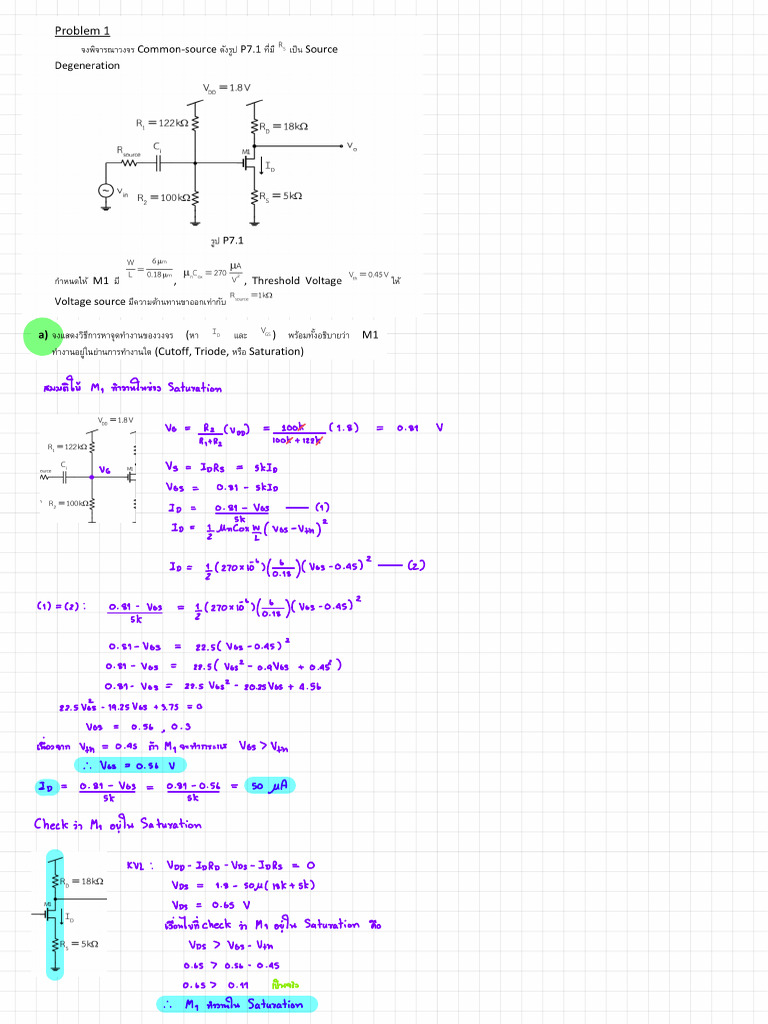 Problem 1
จงพิจารณาวงจร Common-source ดังรูป P7.1 ที่มี R_S เป็น Source
Degeneration
V_DD = 1.8 V
R_1 = 122kΩ
R_D = 18kΩ
R_source
C_i
M1
V_o
I_D
V_in
R_2 = 100kΩ
R_S = 5kΩ
รูป P7.1
กำหนดให้ M1 มี W/L = 6 μm/0.18 μm , μ_nC_ox = 270 μA/V² , Threshold Voltage V_TH = 0.45 V ให้
Voltage source มีความต้านทานขาออกเท่ากับ R_source = 1kΩ
a) จงแสดงวิธีการหาจุดทำงานของวงจร (หา I_D และ V_GS) พร้อมทั้งอธิบายว่า M1
ทำงานอยู่ในย่านการทำงานใด (Cutoff, Triode, หรือ Saturation)
สมมติให้ M1 ทำงานในช่วง Saturation
V_DD = 1.8 V
R_1 = 122kΩ
ource
C_i
VG
M1
R_2 = 100kΩ
VG = R2/(R1+R2) (VDD) = 100k/(100k + 122k) (1.8) = 0.81 V
VS = IDRS = 5kID
VGS = 0.81 - 5kID
ID = (0.81 - VGS)/5k — (1)
ID = 1/2 μnCox W/L (VGS - Vtn)²
ID = 1/2 (270×10⁻⁶)(6/0.18)(VGS - 0.45)² — (2)
(1) = (2) : (0.81 - VGS)/5k = 1/2 (270×10⁻⁶)(6/0.18)(VGS - 0.45)²
0.81 - VGS = 22.5(VGS - 0.45)²
0.81 - VGS = 22.5(VGS² - 0.9VGS + 0.45²)
0.81 - VGS = 22.5 VGS² - 20.25VGS + 4.56
22.5VGS² - 19.25VGS + 3.75 = 0
VGS = 0.56 , 0.3
เนื่องจาก Vtn = 0.45 ถ้า M1 จะทำงาน VGS > Vtn
∴ VGS = 0.56 V
ID = (0.81 - VGS)/5k = (0.81 - 0.56)/5k = 50 μA
Check ว่า M1 อยู่ใน Saturation
R_D = 18kΩ
M1
I_D
R_S = 5kΩ
KVL : VDD - IDRD - VDS - IDRS = 0
VDS = 1.8 - 50μ(18k + 5k)
VDS = 0.65 V
เงื่อนไขที่ check ว่า M1 อยู่ใน Saturation คือ
VDS > VGS - Vtn
0.65 > 0.56 - 0.45
0.65 > 0.11 เป็นจริง
∴ M1 ทำงานใน Saturation